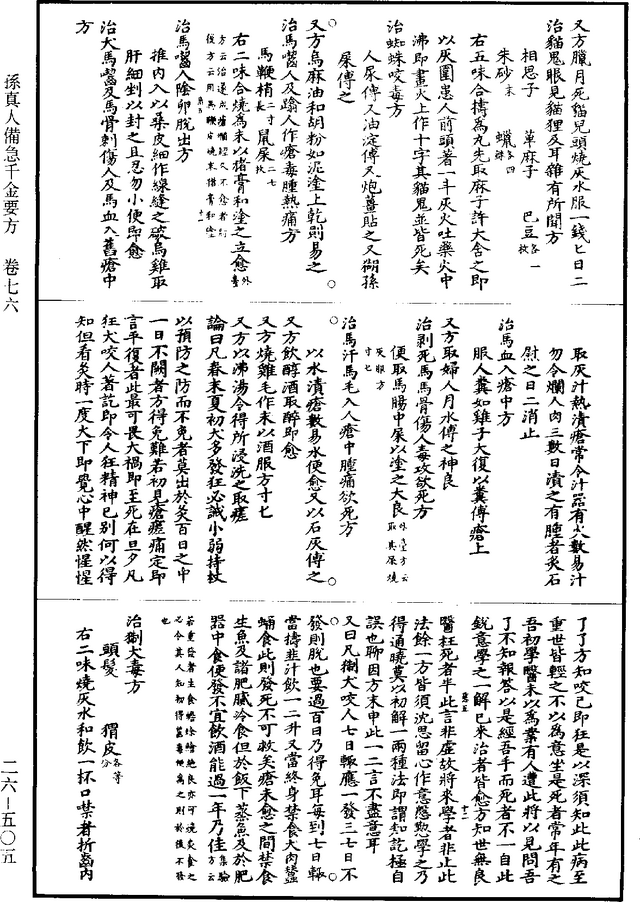 又方臘月死貓兒頭燒灰水服一錢匕日二
治貓鬼眼見貓狸及耳雜有所聞方
相思子　草麻子　巴豆各一枚
朱砂末　蠟各四銖
右五味合擣為丸先取麻子許大含之即
以灰圍患人前頭著一斗灰火吐藥火中
沸即畫火上作十字其貓鬼並皆死矣
治蜘蛛咬毒方
人屎傅又油淀傅又炮薑貼之又猢孫
屎傅之
又方烏麻油和胡粉如泥塗上乾則易之
治馬嚙人及蹋人作瘡毒腫熱痛方
馬鞭梢長二寸　鼠屎二七枚
右二味合燒為末以猪膏和塗之立愈
治馬嚙人陰卵脫出方
推内入以桑皮細作線縫之破烏雞取
肝細剉以封之且忍勿小便即愈
治犬馬嚙及馬骨刺傷人及馬血入舊瘡中
方
取灰汁熱漬瘡常令汁器有火數易汁
勿令爛人肉三數日漬之有腫者炙石
慰之日二消止
治馬血入瘡中方
服人糞如雞子大復以糞傅瘡上
又方取婦人月水傅之神良
治剥死馬馬骨傷人毒攻欲死方
便取馬腸中屎以塗之大良外臺方云取其屎燒灰服方寸匕
治馬汗馬毛入人瘡中腫痛欲死方
以水漬瘡數易水便愈又以石灰傅之
又方飲醇酒取醉即愈
又方燒雞毛作末以酒服方寸匕
又方以沸湯令得所浸洗之取瘥
論曰凡春末夏初犬多發狂必誡小弱持杖
以預防之防而不免者莫出於灸百日之中
一日不闕者方得免難若初見瘡瘥痛定即
言平復者此最可畏大禍即至死在旦夕凡
狂犬咬人著訖即令人狂精神已別何以得
知但看灸時一度大下即覺心中醒然惺惺
了了方知咬已即狂是以深須知此此病至
重世皆輕之不以為意坐是死者常年有之
吾初學醫未以為業有人遭此將以見問吾
了不知報答以是經吾手而死者不一自此
銳意學之一解已來治者皆愈方知世無良
醫枉死者半此言非虛故將來學者非止此
法餘一方皆須沈思留心作意慇懃學之乃
得通曉莫以初解一兩種法即謂知訖極自
誤也聊因方末申此一二言不盡意耳
又曰凡猘犬咬人七日輒應一發三七日不
發則脫也要過百日乃得免耳每到七日輒
當擣韭汁飲一二升又當終身禁食犬肉蠶
蛹食此則發死不可救矣瘡未愈之間禁食
生魚及諸肥膩冷食但於飯下蒸魚及於肥
器中食便發不宜飲酒能過一年乃佳
治猘犬毒方
頭髮　猬皮各等分
右二味燒灰水和飲一杯口噤者折齒内
孫真人備急千金要方　卷七六
二六—五〇五